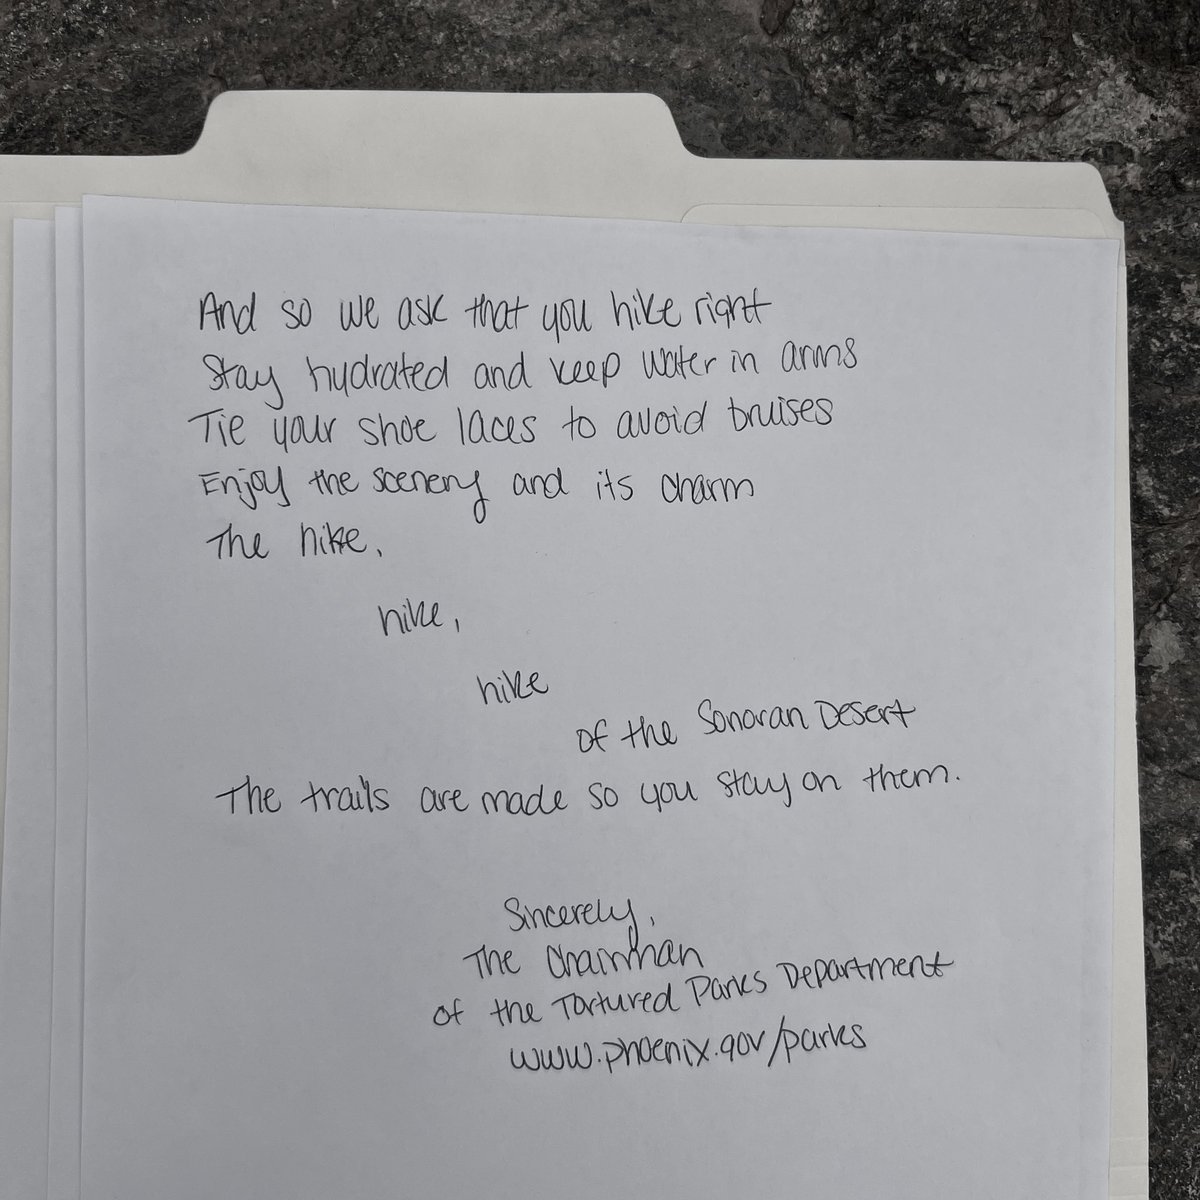 And so we ask that you hike right
Stay hydrated and keep water in arms
Tie your shoe laces to avoid bruises
Enjoy the scenery and its charm
The hike,
hike,
hike
of the Sonoran Desert
The trails are made so you stay on them.
Sincerely,
The Chairman
of the Tortured Parks Department
www.phoenix.gov/parks